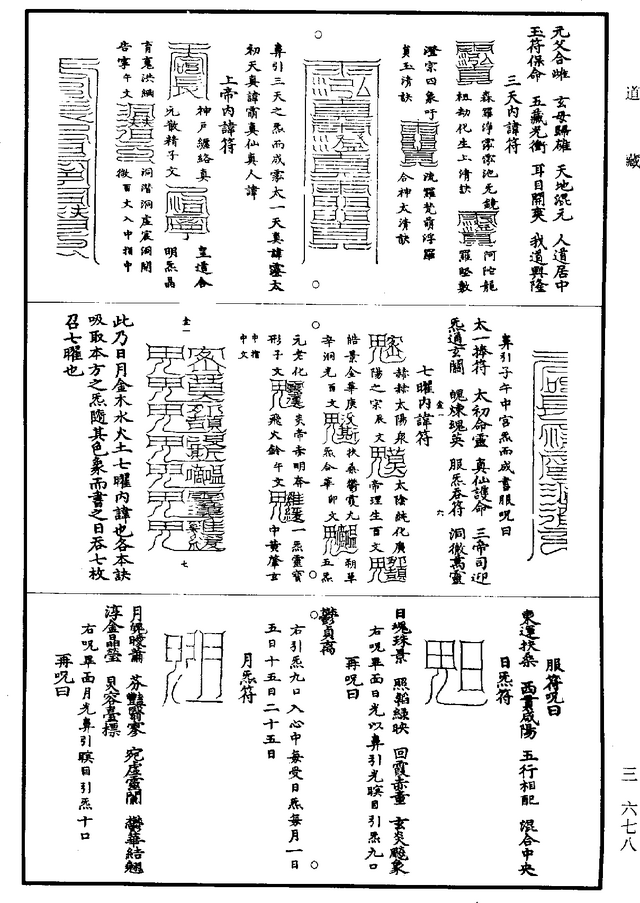 道藏
元父合雌　玄母歸雄　天地混元　人道居中
玉符保命　五藏光衝　耳目開爽　我道興隆
三天內諱符
森羅淨霐霐池元鏡
祖劫化生上清訣
阿陀龍
羅堅敦
澄宗四象吁
真玉清訣
流羅梵萌浮羅
合神太清訣
鼻引三天之炁而成霐太一天真諱霐太
初天真諱霐真仙真人諱
上帝內諱符
神戶纏絡真
元散精子文
皇道合
明炁晶
育嵬洪網
告寧午文
洞潛洞虛宸洞開
微酉文入中指中
鼻引子午中宮炁而成書服呪曰
太一捧符　太初命靈　真仙護命　三帝司迎
炁通玄關　魄煉瑰英　服炁吞符　洞徹萬靈
七曜內諱符
赫赫太陽泉
陽之宗辰文
太陰純化廣
帝理生酉文
皓景金華庚
辛洞光酉文
扶桑鬱霞九
炁合華卯文
朔單
五炁
元老化
形子文
炎帝赤明奔
飛火鈴午文
一炁靈寶
中黃肇玄
中指
中文
此乃日月金木水火土七曜內諱也各本訣
吸取本方之炁隨其色象而書之日吞七枚
召七曜也
服符呪曰
東運扶桑　西貫咸陽　五行相配　混合中央
日炁符
日魂珠景　照韜綠映　回霞赤童　玄炎飈象
右呪畢面日光以鼻引光瞑目引炁九口
再呪曰
鬱貞高
右引炁九口入心中每受日炁每月一日
五日十五日二十五日
月炁符
月魄曖蕭　芬豔翳寥　宛虛靈蘭　鬱華結翹
淳金晶瑩　炅容臺標
右呪畢面月光鼻引瞑目引炁十口
再呪曰
三　六七八